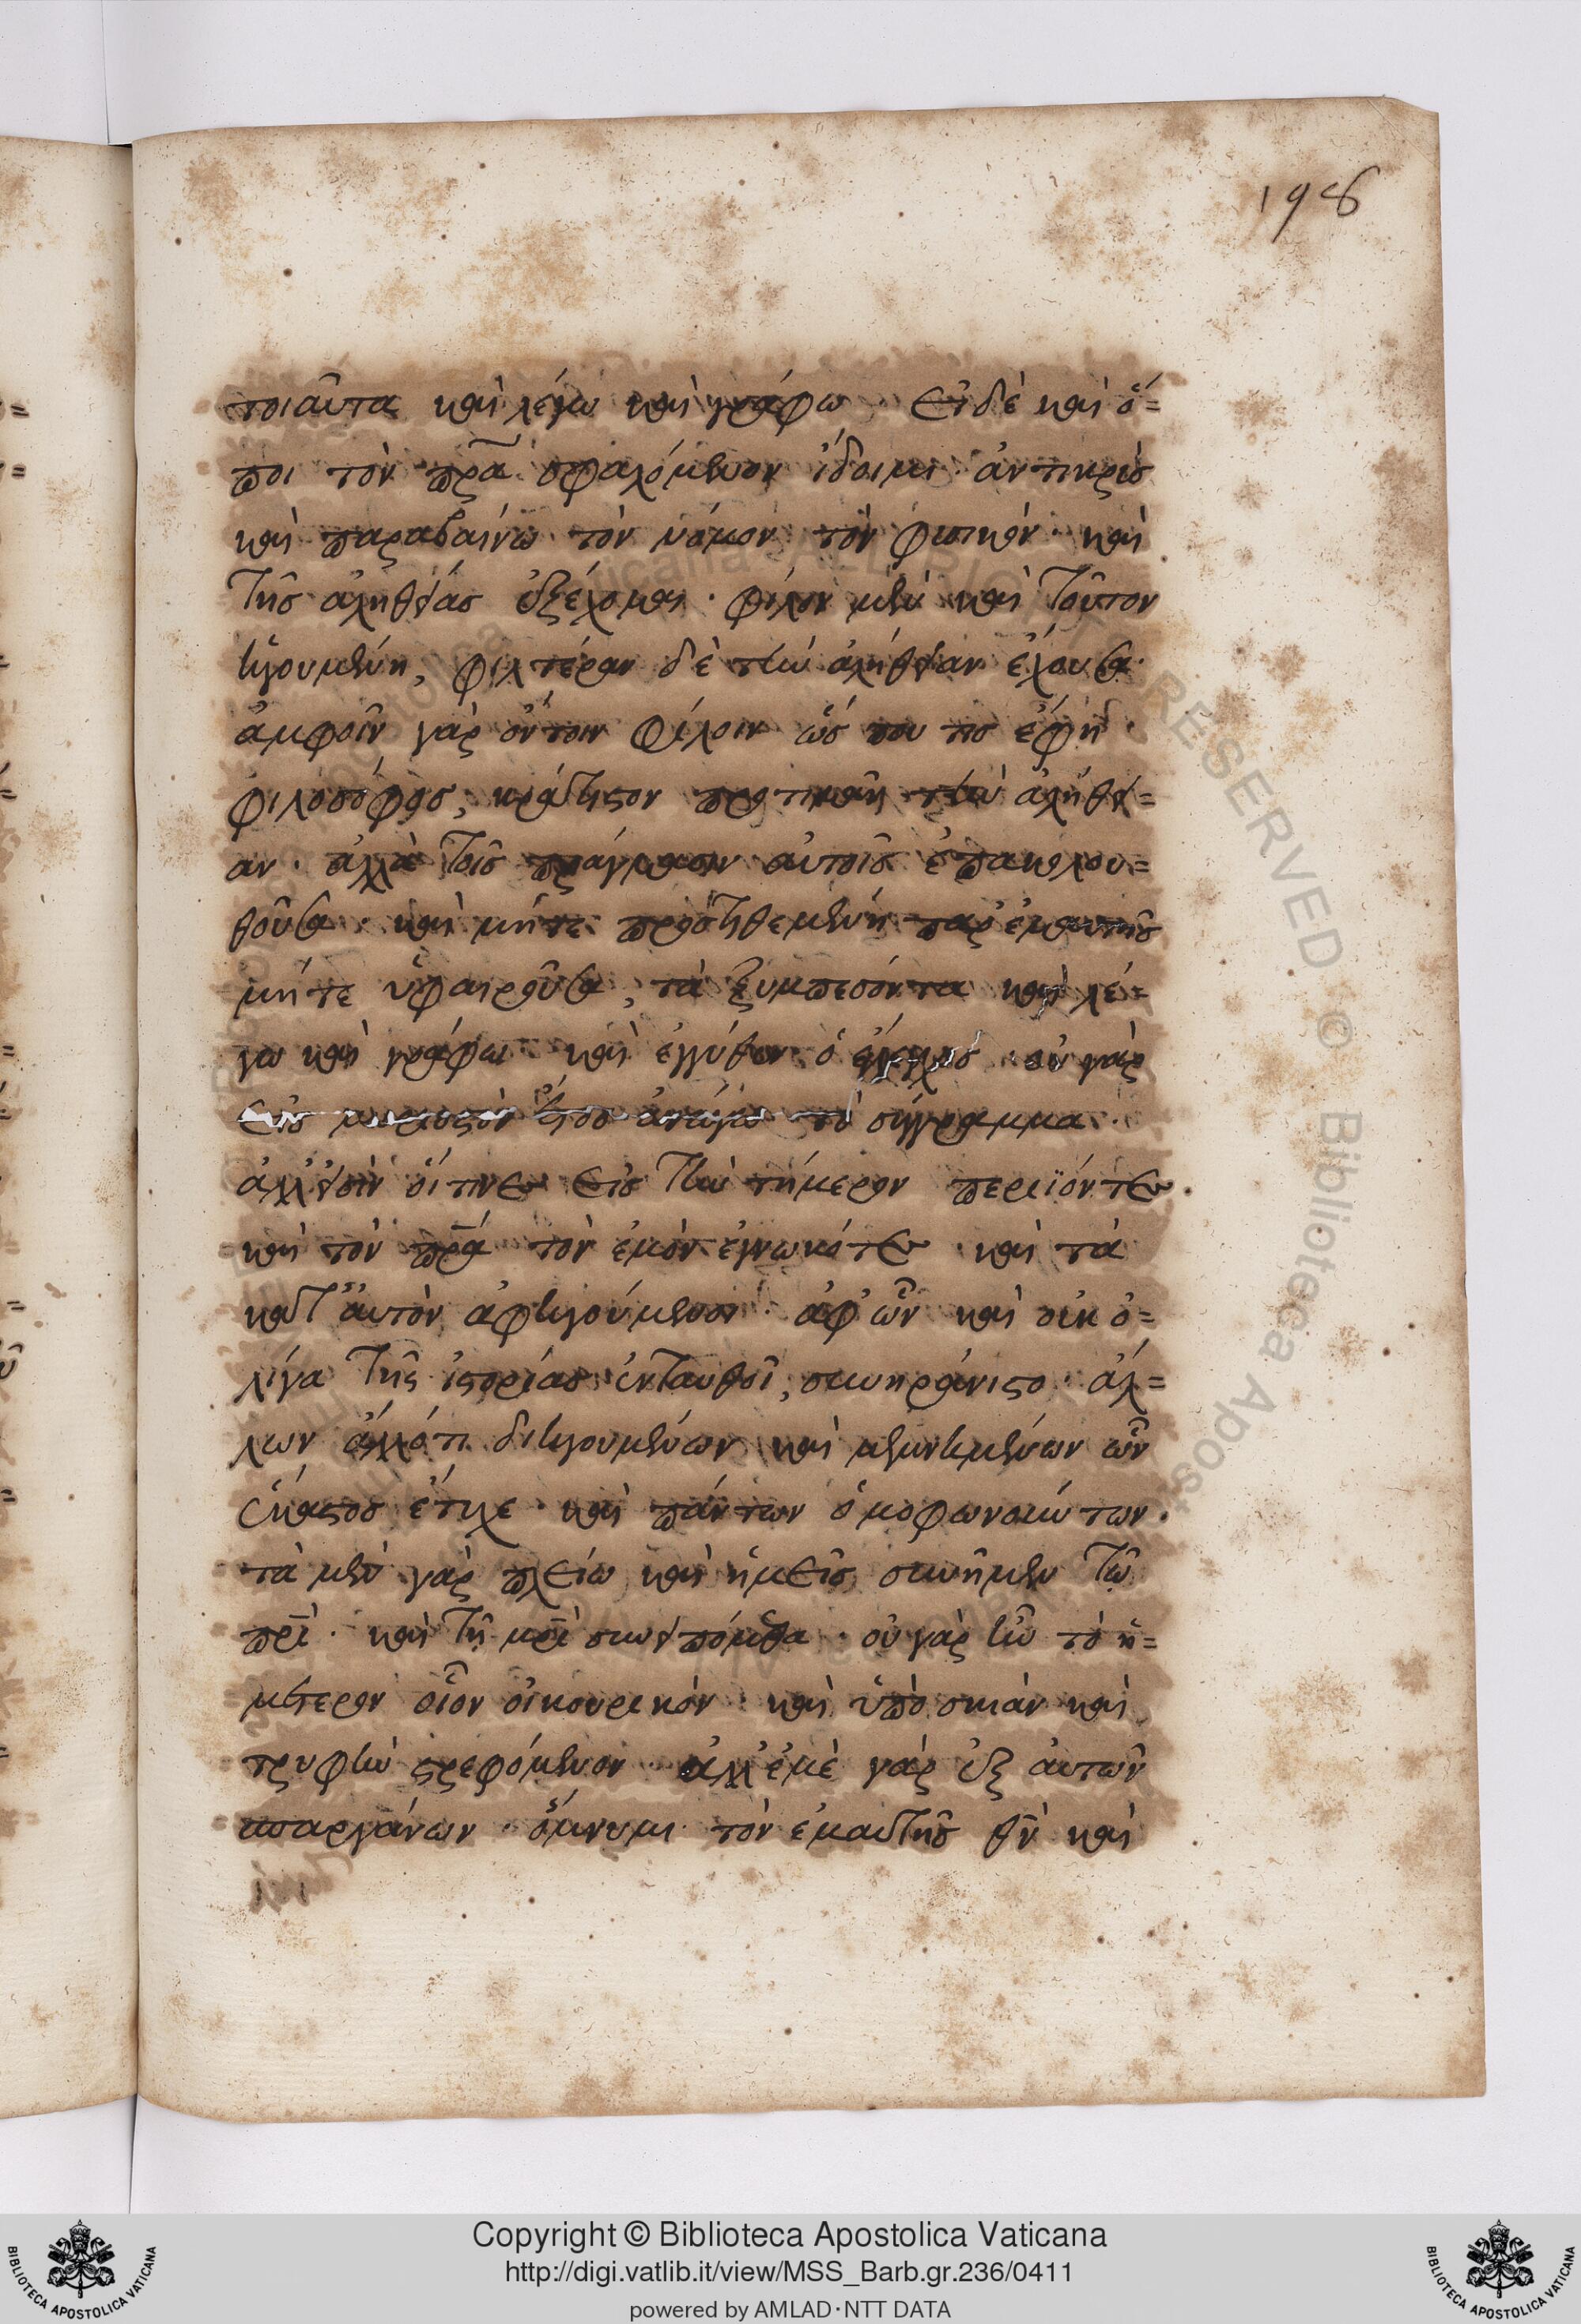 198
τοιαῦτα καὶ λέγω καὶ γράφω. Εἰ δὲ καὶ ὅ=
ποι τὸν πρ̅α σφαλόμενον ἴδοιμι ἀντικρὺς
καὶ παραβαίνω τὸν νόμον τὸν φυσικὸν καὶ
τῆς ἀληθείας ἐξέχομαι. φίλον μὲν καὶ τοῦτον
ἡγουμένη, φιλτέραν δὲ τὴν ἀλήθειαν ἔχουσα.
ἀμφοῖν γὰρ ὄντοιν φίλοιν ὥς που τις ἔφη
φιλοσόφος, κράτιστον προτιμᾶν τὴν ἀλήθει=
αν. ἀλλὰ τοῖς πράγμασιν αὐτοῖς ἐπακολου=
θοῦσα. καὶ μήτε προστιθεμένη παρ' ἐμαυτῆς
μήτε ὑφαιροῦσα, τὰ ξυμπεσόντα καὶ λέ=
γω καὶ γράφω. καὶ ἐγγύθεν ὁ ἔλεγχος. οὐ γὰρ
εἰς μυριοστὸν ἔτος ἀνάγω τὸ σύγγραμμα.
ἀλλ' εἰσὶν οἵτινες εἰς τὴν τήμερον περιϊόντες.
καὶ τὸν πρ̅α τὸν ἐμὸν ἐγνωκότες. καὶ τὰ
κατ' αὐτὸν ἀφηγούμενοι. ἀφ' ὧν καὶ οὐκ ὀ=
λίγα τῆς ἱστορίας ἐνταυθοῖ, συνηράνιστο. ἄλ=
λων ἄλλό τι διηγουμένων καὶ μεμνημένων ὧν
ἕκαστος ἔτυχε. καὶ πάντων ὁμοφωνούντων.
τὰ μὲν γὰρ πλείω καὶ ἡμεῖς συνῆμεν τῷ
πρ̅ι. καὶ τῇ μρ̅ι συνειπόμεθα. οὐ γὰρ ἦν τὸ ἡ=
μέτερον οἷον οἰκουρικὸν. καὶ ὑπὸ σκιὰν καὶ
τρυφὴν στρεφόμενον. ἀλλ' ἐμὲ γὰρ ἐξ αὐτῶν
σπαργάνων ὄμνυμι τὸν ἐμαυτῆς θ̅ν καὶ
Copyright © Biblioteca Apostolica Vaticana
http://digi.vatlib.it/view/MSS_Barb.gr.236/0411
powered by AMLAD·NTT DATA